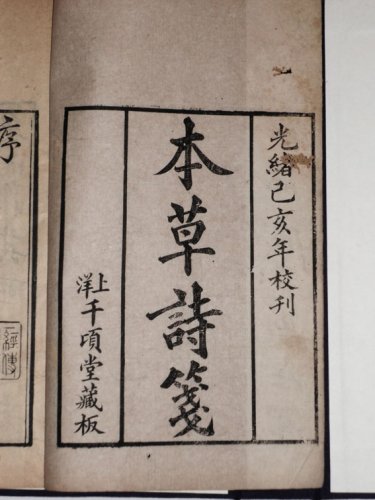 光緒己亥年校刊
本草詩箋
上洋千頃堂藏板
序